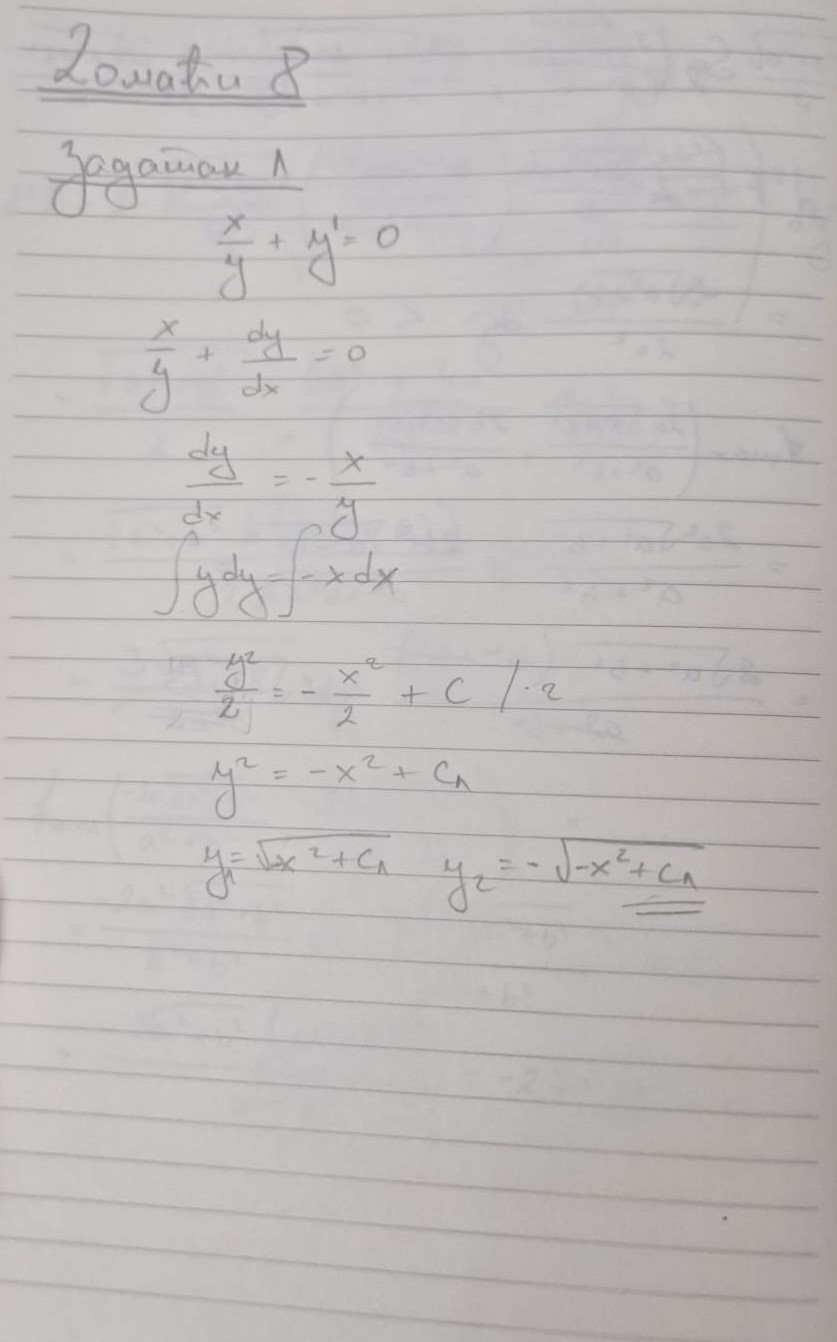 Домаћи 8
Задатак 1
x/y + y' = 0
x/y + dy/dx = 0
dy/dx = - x/y
∫ y dy = ∫ -x dx
y²/2 = - x²/2 + C /·2
y² = -x² + C₁
y₁ = √x² + C₁ y₂ = - √-x² + C₁